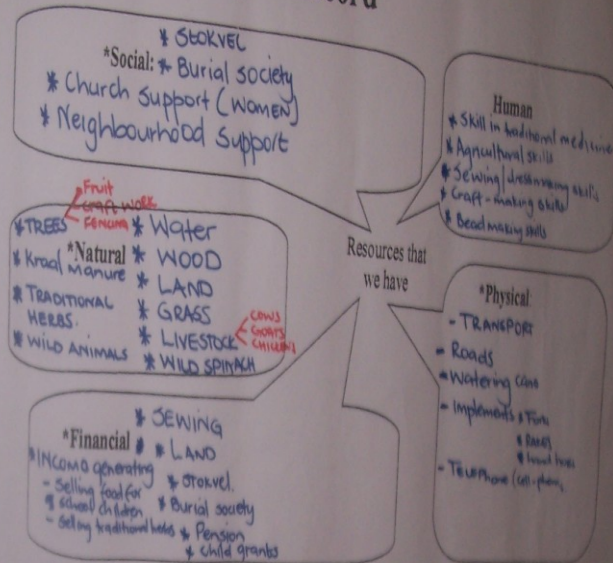 * STOKVEL
*Social: * Burial society
* Church Support (WOMEN)
* Neighbourhood Support
Human
* Skill in traditional medicine
* Agricultural skills
* Sewing/dressmaking skills
* Craft-making skills
* Bead making skills
Resources that
we have
Fruit
CRAFT WORK
FENCING
* TREES
*Natural
* Kraal manure
* TRADITIONAL
HERBS.
* WILD ANIMALS
* Water
* WOOD
* LAND
* GRASS
* LIVESTOCK
COWS
GOATS
CHICKENS
* WILD SPINACH
*Physical
- TRANSPORT
- Roads
- Watering cans
- Implements *
* RAKES
* hand hoes
- TELEPHONE (cell-phone)
*Financial
* SEWING
* LAND
*INCOME generating
- Selling food for
school children
- Selling traditional herbs
* Stokvel.
* Burial society
* Pension
* Child grants